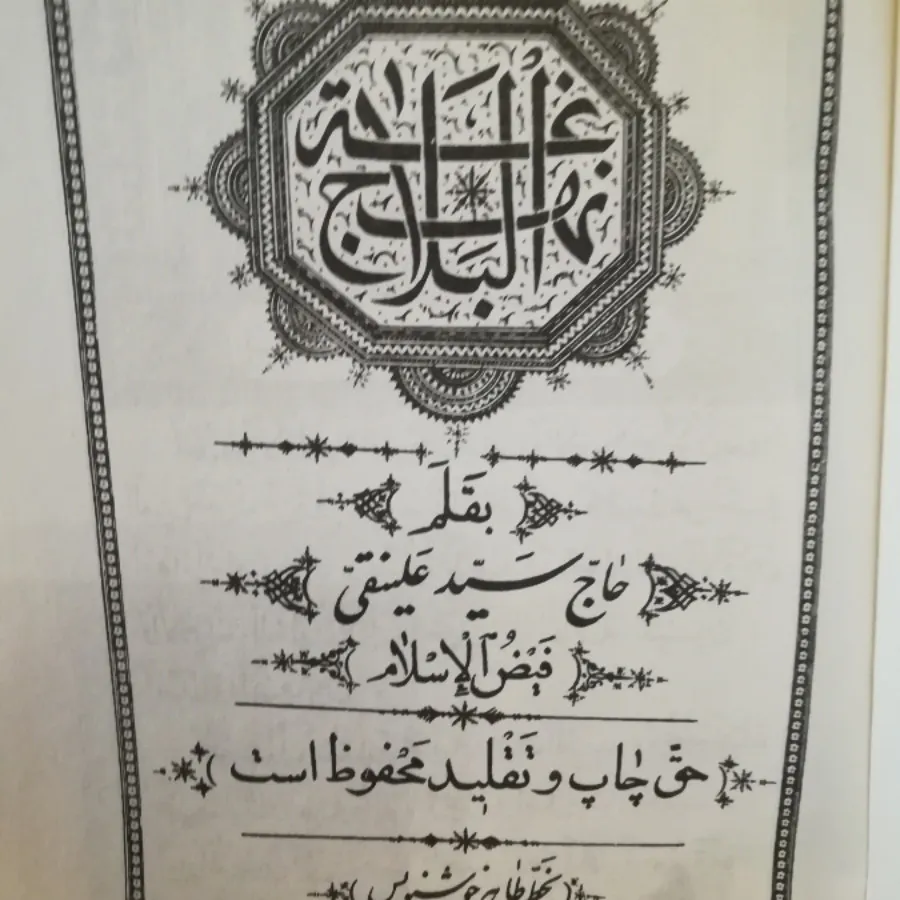 نهج البلاغة
بقَلَمِ
حاجّ سَیّد عَلینقیّ
فَیْضُ الْإِسْلام
حقّ چاپ و تَقْلید مَحْفوظ است
بخطّ طاهر خوشنویس